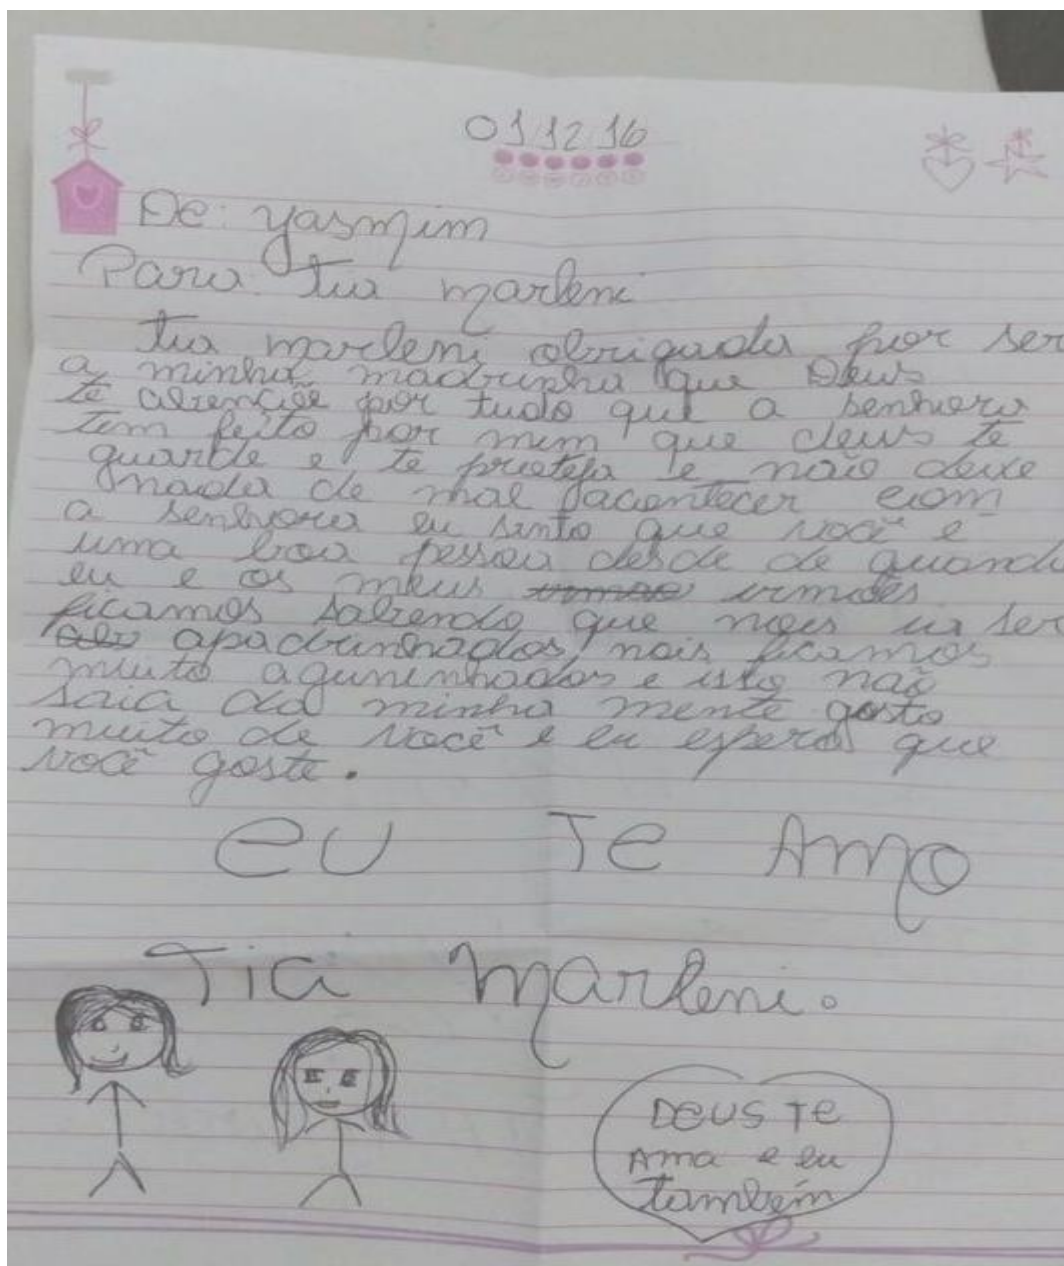 01 12 16
De: yasmim
Para tia marleni
tia marleni obrigada por ser
a minha madrinha que Deus
te abençõe por tudo que a senhora
tem feito por mim que deus te
guarde e te proteja e não deixe
nada de mal acontecer com
a senhora eu sinto que você é
uma boa pessoa desde de quando
eu e os meus irmões
ficamos sabendo que nois ia ser
apadrinhados nois ficamos
muito e isto não
saia da minha mente gosto
muito de você e eu espero que
você goste.
eu Te Amo
Tia Marleni.
DeUS Te
Ama e eu
também